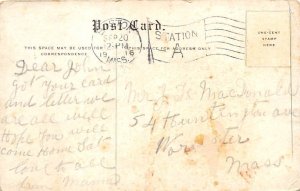 Post Card.
STATION
A
SEP 20
2-PM
19 16
MASS.
THIS SPACE MAY BE USED FOR
CORRESPONDENCE
THIS SPACE FOR ADDRESS ONLY
ONE-CENT
STAMP
HERE
Dear John
Got your card
and letter we
are all well
Hope you will
come Home Sat
love to all
Mama
Mr J. MacDonald
54 Huntington ave
Worcester
Mass